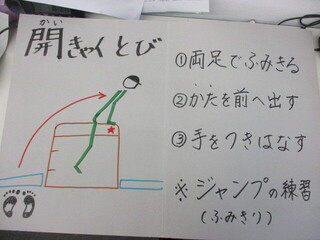 かい
開きゃくとび
①両足でふみきる
②かたを前へ出す
③手をつきはなす
※ジャンプの練習
(ふみきり)